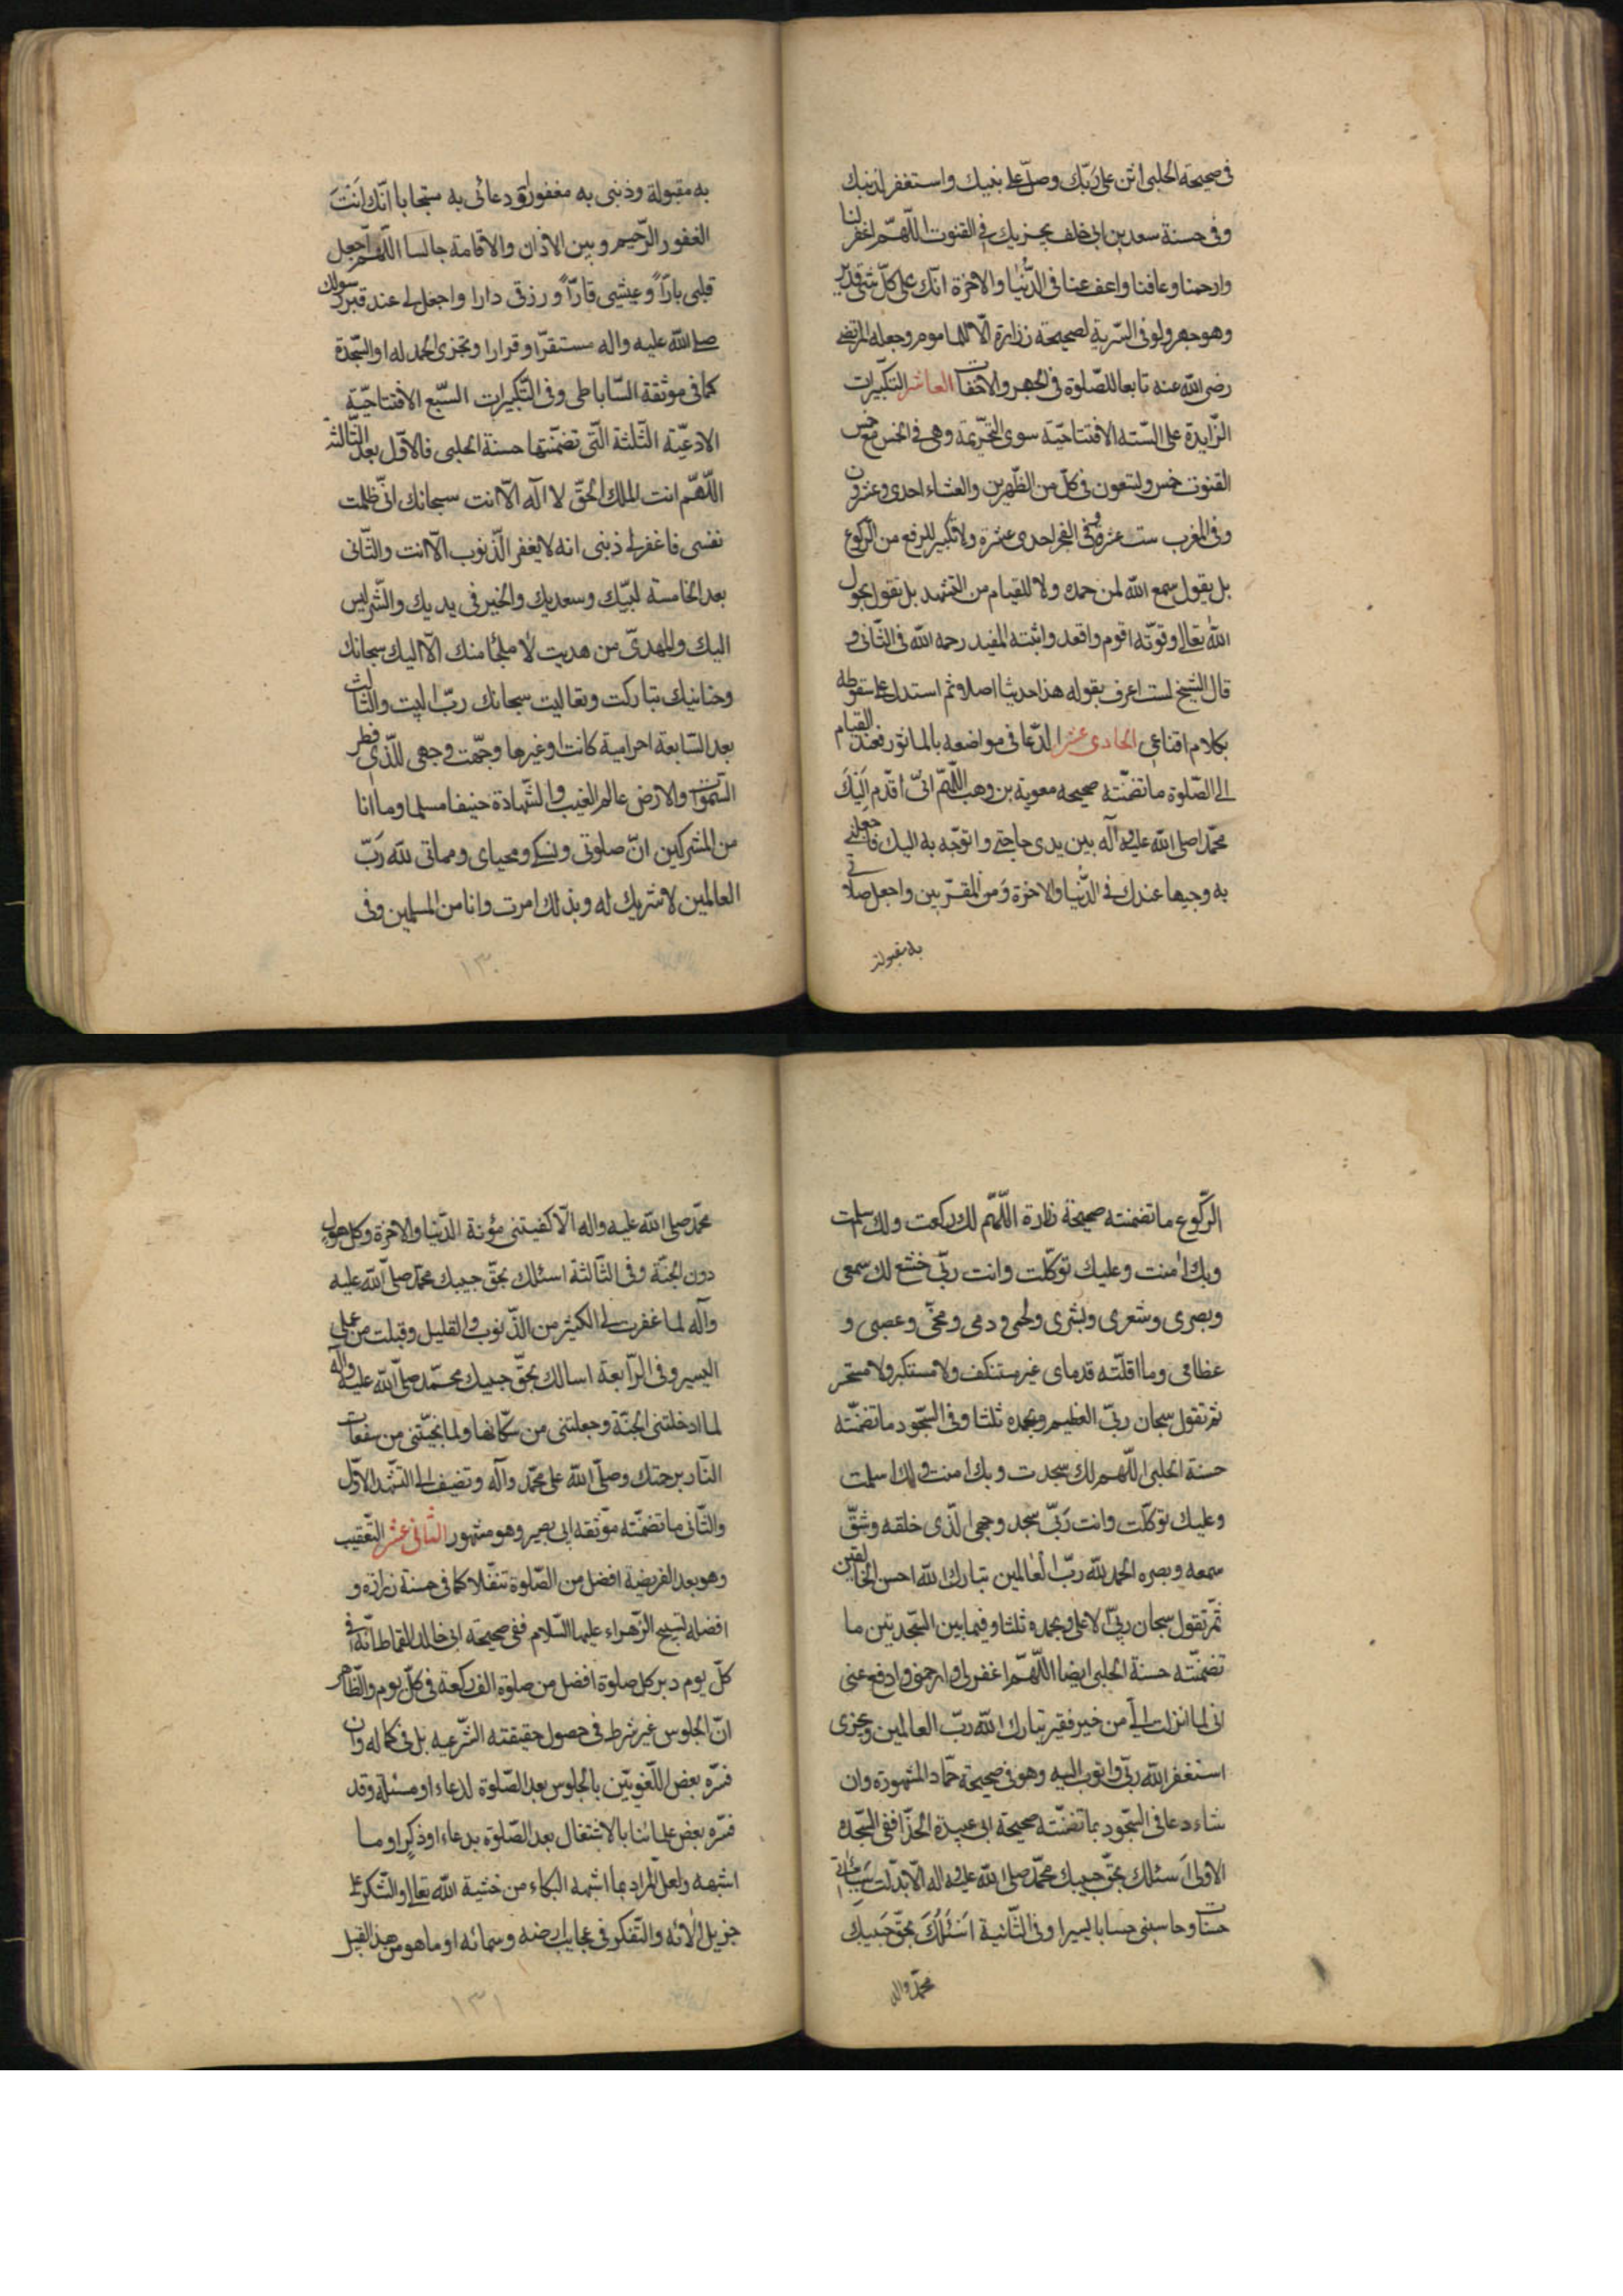 فى صحيحة الحلبى اثن على ربّك وصلّ على نبيك واستغفر لذنبك
وفى حسنة سعد بن ابى خلف يجزيك فى القنوت اللّهمّ اغفر لنا
وارحمنا وعافنا واعف عنا فى الدّنيا والاخرة انّك على كلّ شئ قدير
وهو جهر ولو فى السّرية لصحيحة زرارة الّا للماموم وجعله المرتضى
رضى الله عنه تابعا للصّلوة فى الجهر والاخفات العاشر التكبيرات
الزّايدة على الستّه الافتتاحيّة سوى التّحريمة وهى فى الخمس مع خمس
القنوت خمس وتسعون فى كلّ من الظّهرين والعشاء احدى وعشرون
وفى المغرب ست عشرة وفى الفجر احدى عشرة ولا تكبير للرفع من الرّكوع
بل يقول سمع الله لمن حمده ولا للقيام من التشهد بل يقول بحول
الله تعالى وقوّته اقوم واقعد واثبته المفيد رحمه الله فى الثّانى و
قال الشيخ لست اعرف بقوله هذا حديثا اصلا وثم استدل على سقوطه
بكلام اقناعى الحادى عشر الدّعا فى مواضعه بالماثور فعند القيام
الى الصّلوة ما تضمّنته صحيحه معوية بن وهب اللّهمّ انّى اقدّم اليك
محمّدا صلى الله عليه وآله بين يدى حاجتى واتوجّه به اليك فاجعلنى
به وجيها عندك فى الدّنيا والاخرة ومن المقرّبين واجعل صلاتى
به مقبولة
به مقبولة وذنبى به مغفورا ودعائى به مستجابا انّك انت
الغفور الرّحيم وبين الاذان والاقامة جالسا اللّهمّ اجعل
قلبى بارّاً وعيشى قارّاً ورزقى دارا واجعل لى عند قبر رسولك
صلى الله عليه واله مستقرّا وقرارا وتجزى الحمد له او السّجدة
كما فى موثقة السّاباطى وفى التّكبيرات السّبع الافتتاحيّة
الادعيّة الثّلثة الّتى تضمّنتها حسنة الحلبى فالاوّل بعد الثّالثة
اللّهمّ انت الملك الحقّ لا اله الّا انت سبحانك انّى ظلمت
نفسى فاغفر لى ذنبى انه لا يغفر الذّنوب الّا انت والثّانى
بعد الخامسة لبّيك وسعديك والخير فى يديك والشّر ليس
اليك والمهدىّ من هديت لا ملجأ منك الّا اليك سبحانك
وحنانيك تباركت وتعاليت سبحانك ربّ البيت والثّالث
بعد السّابعة احرامية كانت او غيرها وجّهت وجهى للّذى فطر
السّموات والارض عالم الغيب والشّهادة حنيفا مسلما وما انا
من المشركين انّ صلوتى ونسكى ومحياى ومماتى لله ربّ
العالمين لا شريك له وبذلك امرت وانا من المسلمين وفى
١٣٠
الرّكوع ما تضمنته صحيحة زرارة اللّهمّ لك ركعت ولك اسلمت
وبك امنت وعليك توكّلت وانت ربّى خشع لك سمعى
وبصرى وشعرى وبشرى ولحمى ودمى ومخّى وعصبى و
عظامى وما اقلّته قدماى غير مستنكف ولا مستكبر ولا مستحسر
ثم تقول سبحان ربّى العظيم وبحمده ثلثا وفى السّجود ما تضمّنته
حسنة الحلبى اللّهمّ لك سجدت وبك امنت ولك اسلمت
وعليك توكّلت وانت ربّى سجد وجهى الّذى خلقه وشقّ
سمعه وبصره الحمد لله ربّ العالمين تبارك الله احسن الخالقين
ثمّ تقول سبحان ربّى الاعلى وبحمده ثلثا وفيما بين السّجدتين ما
تضمنّته حسنة الحلبى ايضا اللّهمّ اغفر لى وارحمنى وادفع عنى
انى لما انزلت الىّ من خير فقير تبارك الله ربّ العالمين ويجزى
استغفر الله ربّى واتوب اليه وهو فى صحيحة حمّاد المشهورة وان
شاء دعا فى السّجود بما تضمّنته صحيحة ابى عبيدة الحذّا ففى السّجده
الاولى اسئلك بحقّ حبيبك محمّد صلى الله عليه واله الّا بدّلت سيئاتى
حسنات وحاسبنى حسابا يسيرا وفى الثّانية اسئلك بحقّ حبيبك
محمّد واله
محمّد صلى الله عليه واله الّا كفيتنى مؤنة الدّنيا والاخرة وكل هول
دون الجنّة وفى الثّالثة اسئلك بحقّ حبيبك محمّد صلّى الله عليه
وآله لما غفرت لى الكثير من الذّنوب والقليل وقبلت من عملى
اليسير وفى الرّابعة اسالك بحقّ حبيبك محمّد صلّى الله عليه واله
لما ادخلتنى الجنّة وجعلتنى من سكّانها ولما نجيّتنى من سفعات
النّار برحمتك وصلّى الله على محمّد وآله وتضيف الى التشهّد الاوّل
والثّانى ما تضمّنته موثقه ابى بصير وهو مشهور الثّانى عشر التّعقيب
وهو بعد الفريضة افضل من الصّلوة تنفّلا كما فى حسنة زرارة و
افضله تسبيح الزّهراء عليها السّلام ففى صحيحة ابى خالد القماط انّه فى
كلّ يوم دبر كل صلوة افضل من صلوة الف ركعة فى كلّ يوم والظّاهر
انّ الجلوس غير شرط فى حصول حقيقته الشّرعيه بل فى كماله وان
فسّره بعض اللّغويّين بالجلوس بعد الصّلوة لدعاء او مسئلة وقد
فسّره بعض علمائنا بالاشتغال بعد الصّلوة بدعاء او ذكر او ما
اشبهه ولعلّ المراد بما اشبهه البكاء من خشية الله تعالى والشّكر على
جزيل الائه والتّفكر فى عجايب ارضه وسمائه او ما هو من هذا القبيل
١٣١